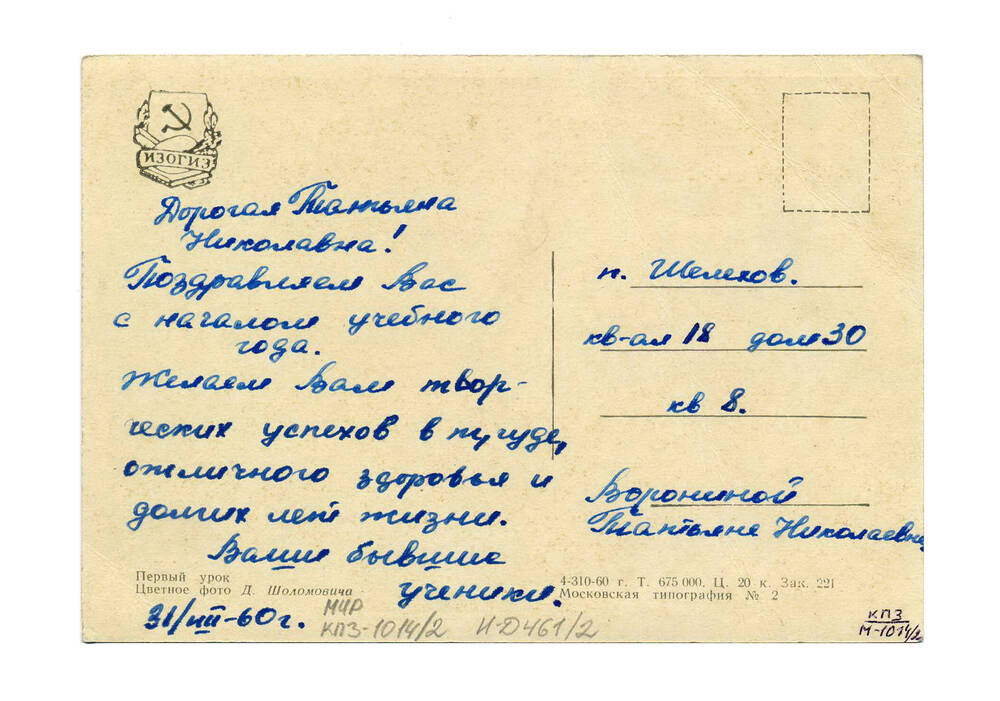 ИЗОГИЗ
Дорогая Татьяна
Николавна!
Поздравляем Вас
с началом учебного
года.
Желаем Вам твор-
ческих успехов в
отличного здоровья и
долгих лет жизни.
Ваши бывшие
ученики.
31/VIII-60г.
п. Шелехов.
кв-ал 18 дом 30
кв 8.
Ворониной
Татьяне Николаевне
Первый урок
Цветное фото Д. Шоломовича
4-310-60 г. Т. 675 000. Ц. 20 к. Зак. 221
Московская типография № 2
МЧР
КПЗ-1014/2 И-Д461/2
КПЗ
М-1014/2